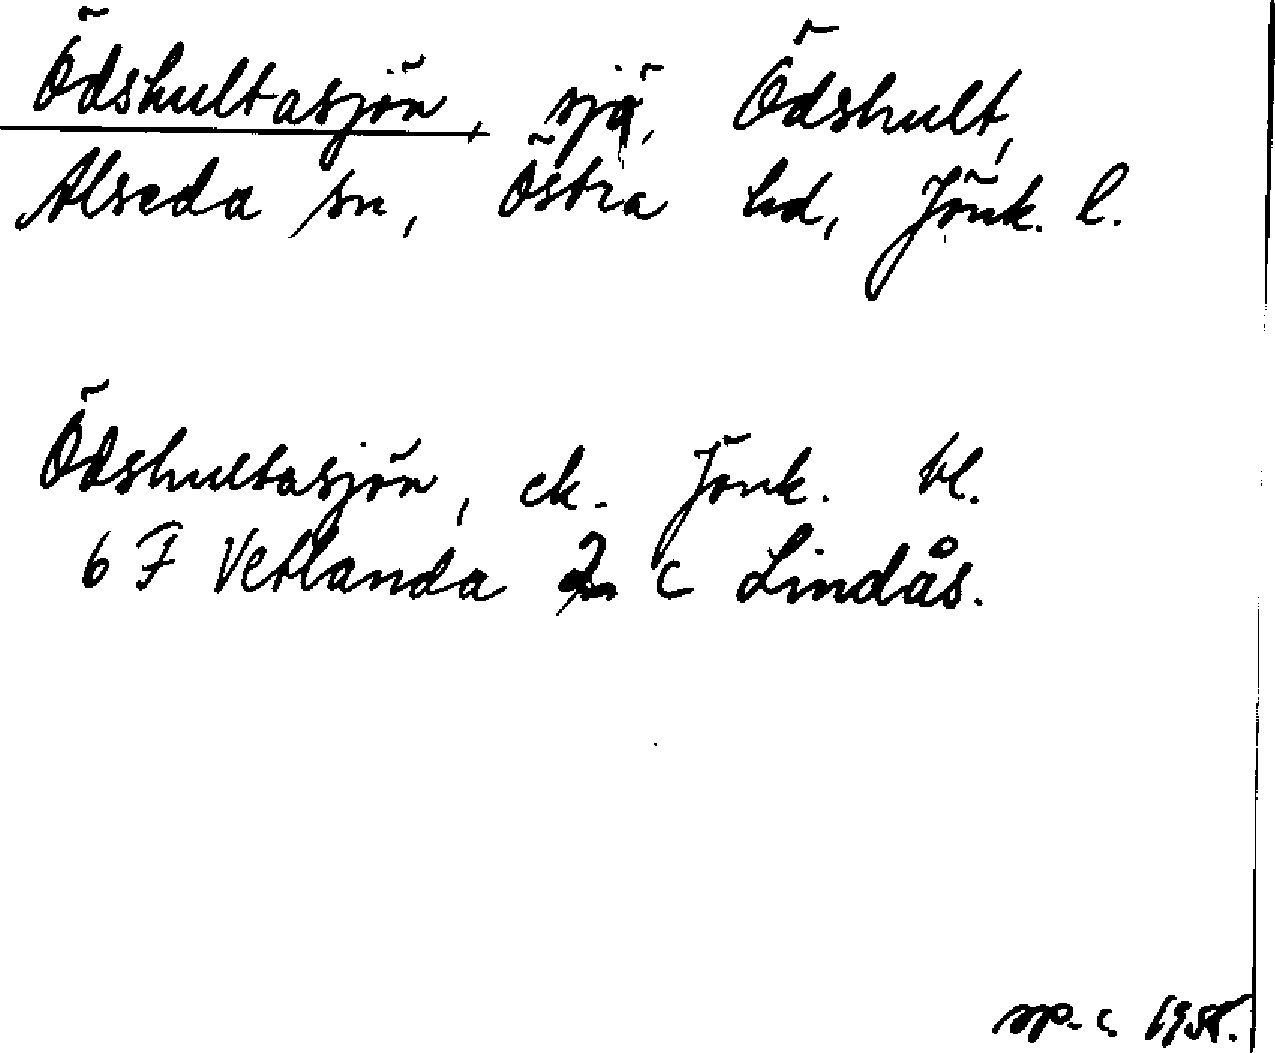 Ödshultasjön, sjö, Ödshult,
Alseda sn, Östra hd, Jönk. l.
Ödshultasjön, ek. Jönk. bl.
6 F Vetlanda 2 c Lindås.